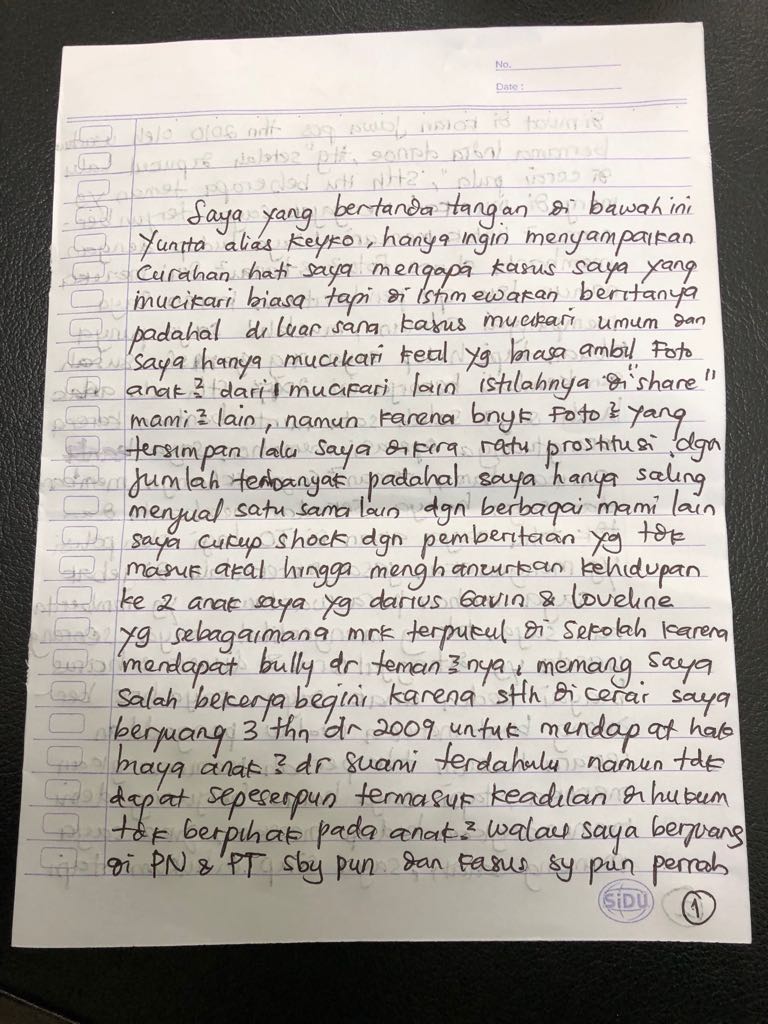 No.
Date :
Saya yang bertanda tangan di bawah ini
Yunita alias Keyko, hanya ingin menyampaikan
Curahan hati saya mengapa kasus saya yang
mucikari biasa tapi di istimewakan beritanya
padahal diluar sana kasus mucikari umum dan
saya hanya mucikari kecil yg biasa ambil Foto
anak² dari mucikari lain istilahnya di "share"
mami² lain, namun karena bnyk Foto² yang
tersimpan lalu saya dikira ratu prostitusi dgn
Jumlah terbanyak padahal saya hanya saling
menjual satu sama lain dgn berbagai mami lain
saya cukup shock dgn pemberitaan yg tdk
masuk akal hingga menghancurkan kehidupan
ke 2 anak saya yg darius Gavin & Loveline
yg sebagaimana mrk terpukul di sekolah karena
mendapat bully dr teman²nya, memang saya
salah bekerja begini karena stlh dicerai saya
berjuang 3 thn dr 2009 untuk mendapat hak
biaya anak² dr suami terdahulu namun tdk
dapat sepeserpun termasuk keadilan dihukum
tdk berpihak pada anak² walau saya berjuang
di PN & PT sby pun dan kasus sy pun pernah
SiDU
1